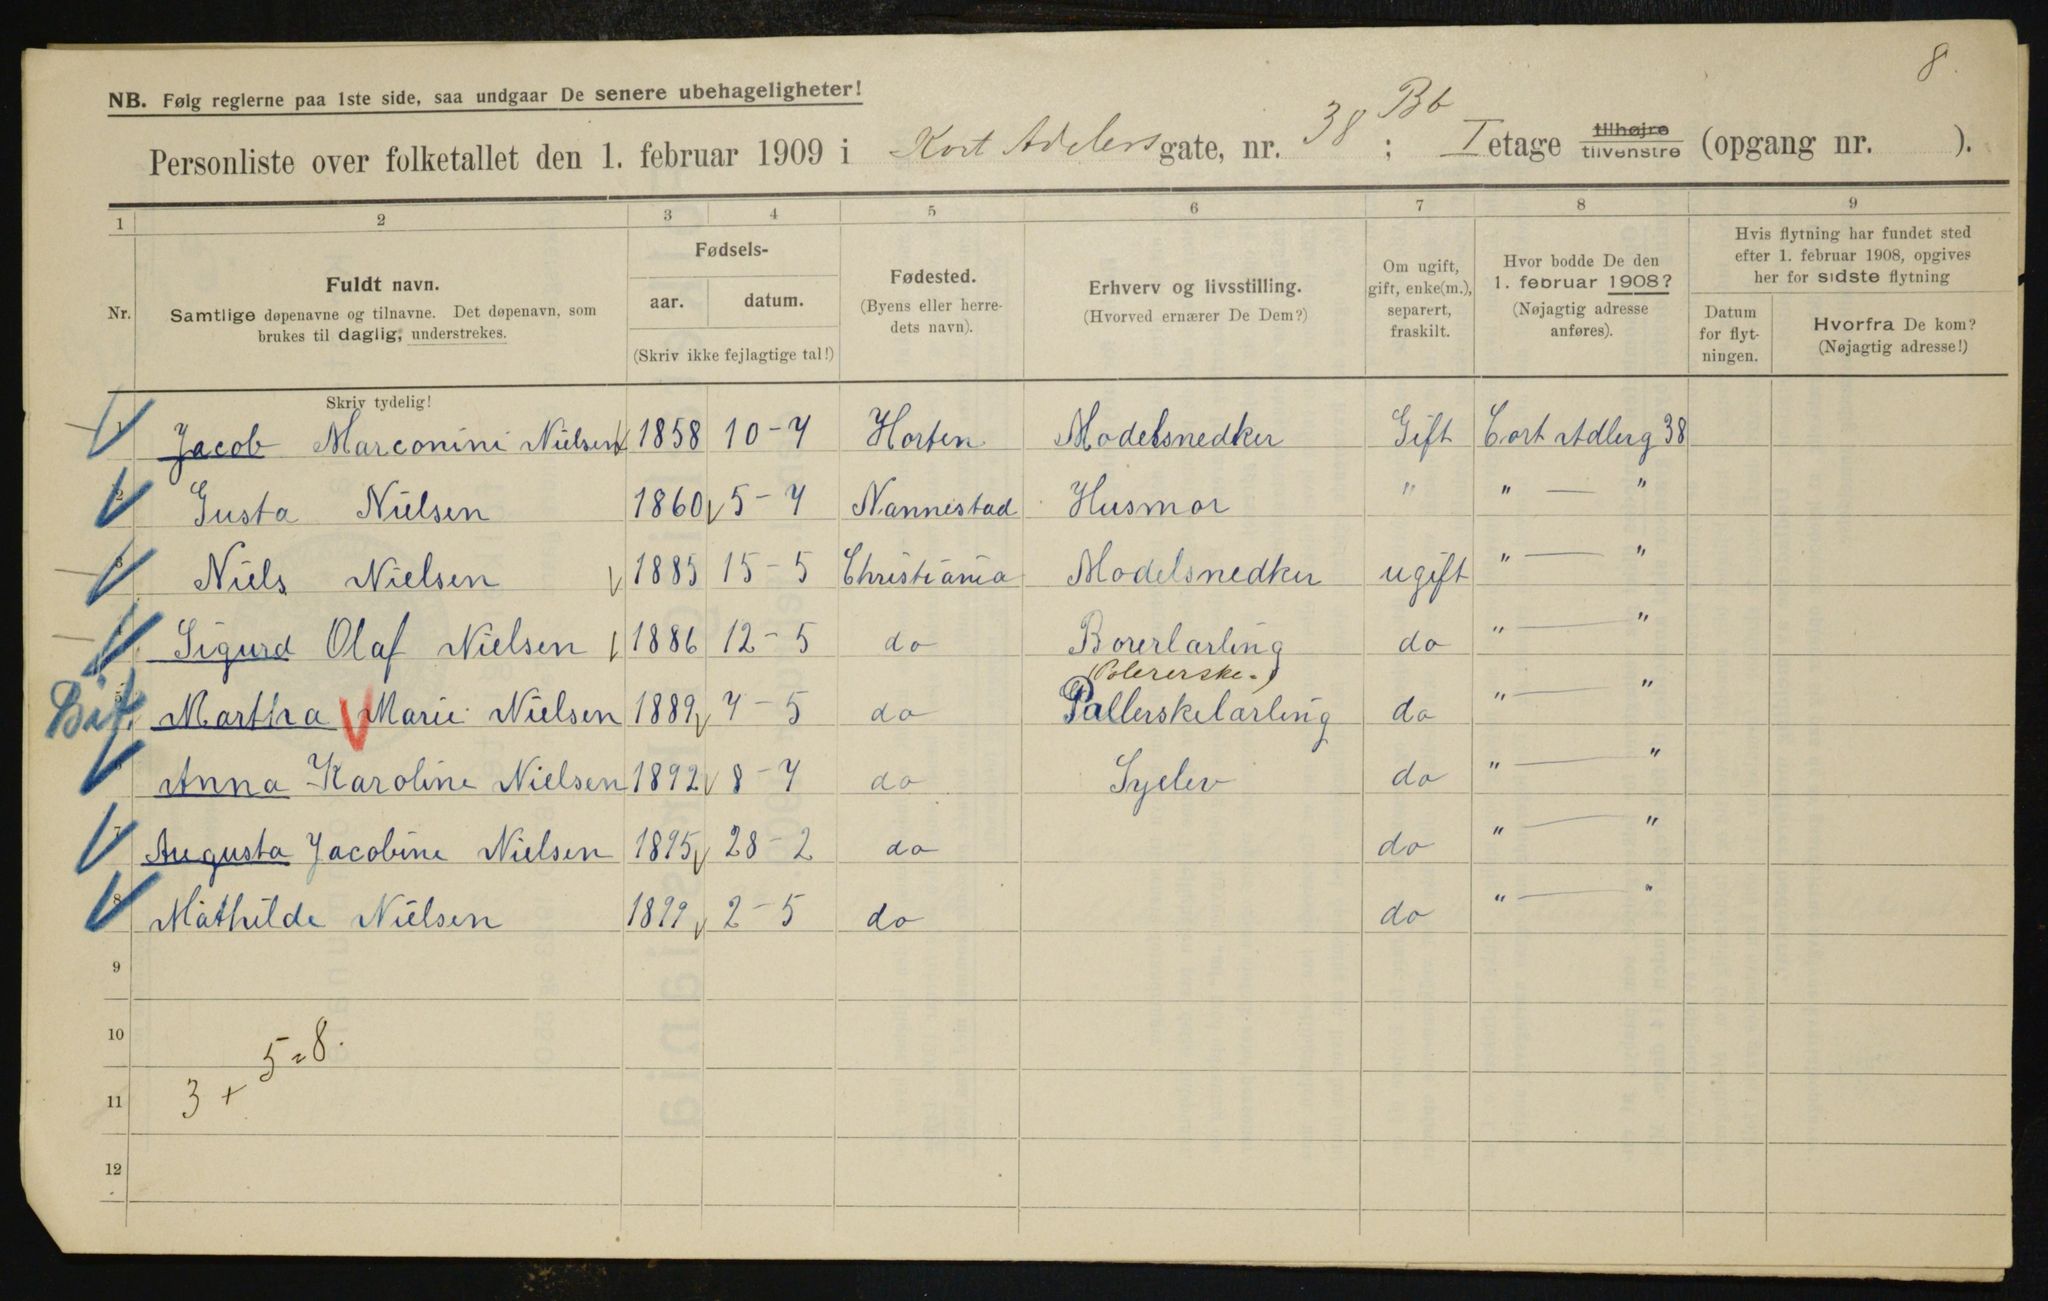 8.
NB. Følg reglerne paa 1ste side, saa undgaar De senere ubehageligheter!
Personliste over folketallet den 1. februar 1909 i Kort Adelersgate, nr. 38 Bb; I etage tilhøjre tilvenstre (opgang nr. ).
1 2 3 4 5 6 7 8 9
Nr.
Fuldt navn.
Samtlige døpenavne og tilnavne. Det døpenavn, som
brukes til daglig, understrekes.
Skriv tydelig!
Fødsels-
aar. datum.
(Skriv ikke fejlagtige tal!)
Fødested.
(Byens eller herre-
dets navn).
Erhverv og livsstilling.
(Hvorved ernærer De Dem?)
Om ugift,
gift, enke(m.),
separert,
fraskilt.
Hvor bodde De den
1. februar 1908?
(Nøjagtig adresse
anføres).
Hvis flytning har fundet sted
efter 1. februar 1908, opgives
her for sidste flytning
Datum
for flyt-
ningen.
Hvorfra De kom?
(Nøjagtig adresse!)
1 Jacob Marconini Nielsen 1858 10-4 Horten Modelsnedker Gift Cort Adlerg 38
2 Gusta Nielsen 1860 5-4 Nannestad Husmor " " — "
3 Niels Nielsen 1885 15-5 Christiania Modelsnedker ugift " — "
4 Sigurd Olaf Nielsen 1886 12-5 do Borerlærling do " — "
(Polererske.)
5 Martha Marie Nielsen 1889 4-5 do Pallerskelærling do " — "
6 Anna Karoline Nielsen 1892 8-4 do Syelev do " — "
7 Augusta Jacobine Nielsen 1895 28-2 do do " — "
8 Mathilde Nielsen 1899 2-5 do do " — "
9
10
3 + 5 = 8.
11
12